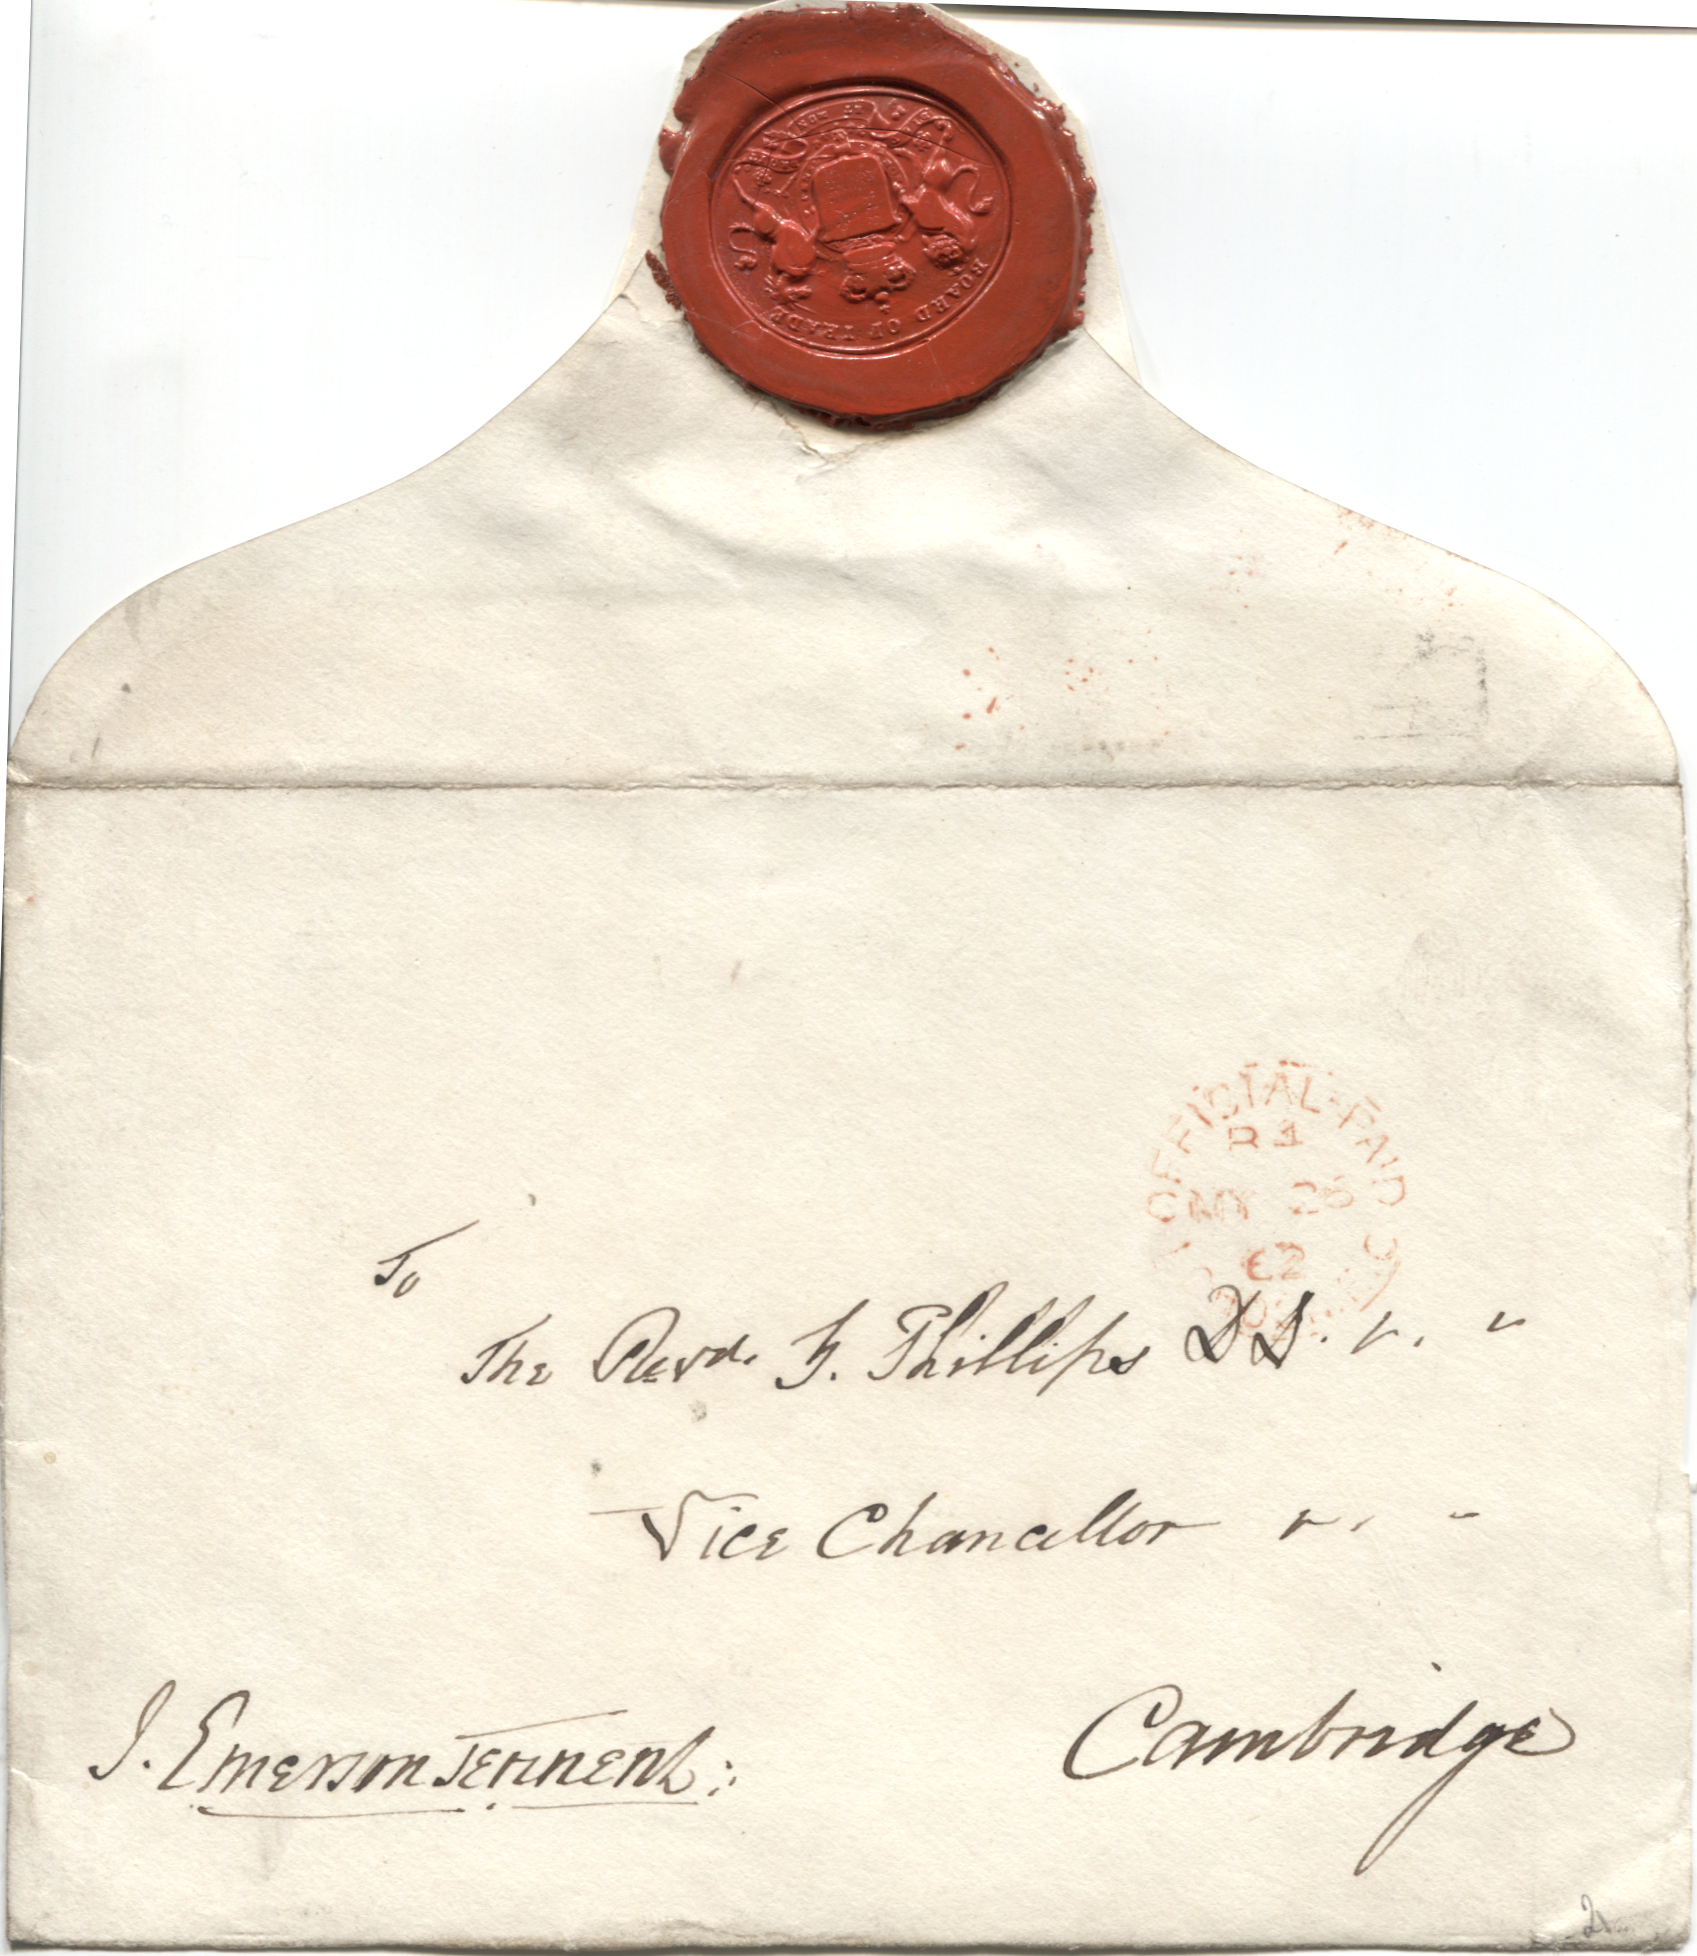 BOARD OF TRADE
OFFICIAL PAID
MY 26
62
To
The Revd. G. Phillips DD. &. "
Vice Chancellor &. "
J. Emerson Tennent
Cambridge
2